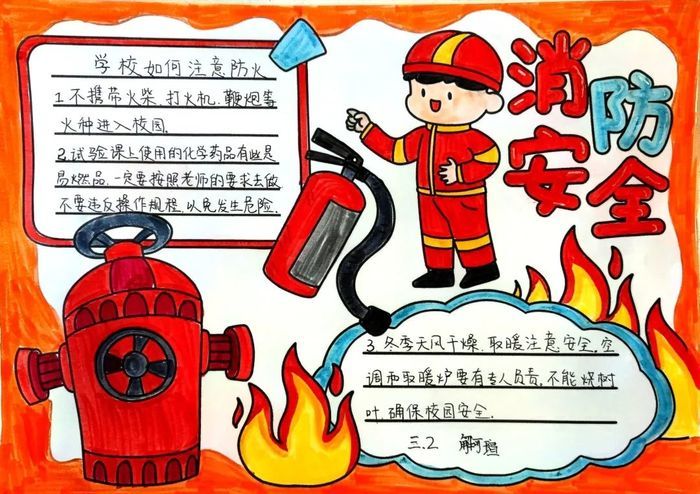 消防
安全
学校如何注意防火
1.不携带火柴、打火机、鞭炮等
火种进入校园.
2.试验课上使用的化学药品有些是
易燃品,一定要按照老师的要求去做
不要违反操作规程,以免发生危险.
3.冬季天风干燥、取暖注意安全,空
调和取暖炉要有专人负责,不能烧树
叶,确保校园安全.
三.2